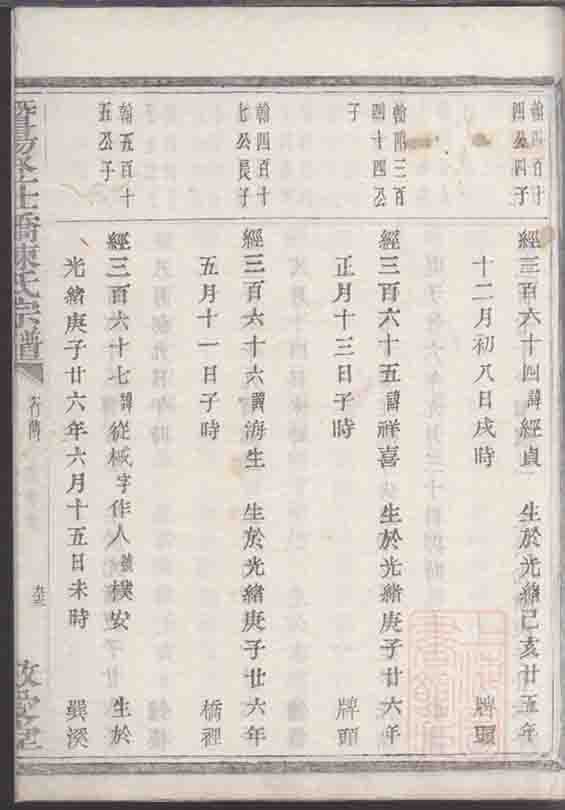 翰四百十
四公四子
經三百六十四諱經貞 生於光緒己亥廿五年
十二月初八日戌時 牌頭
翰四百
四十四公
子
經三百六十五諱祥喜 生於光緒庚子廿六年
正月十三日子時 牌頭
翰四百十
七公長子
經三百六十六諱海生 生於光緒庚子廿六年
五月十一日子時 橋裡
翰五百十
五公子
經三百六十七諱從棫字作人號樸安 生於
光緒庚子廿六年六月十五日未時 巽溪
陳氏宗譜
行傳